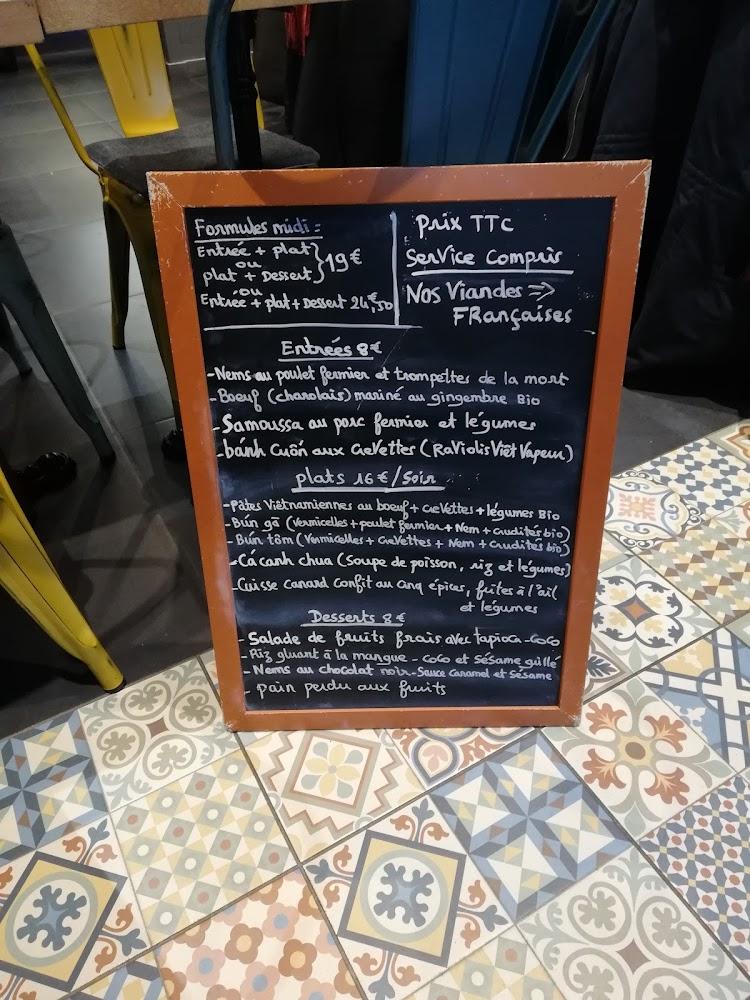 Formules midi :
Entrée + plat
ou
plat + Dessert
19€
ou
Entrée + plat + Dessert 24,€50
Prix TTC
Service Compris
Nos Viandes =>
FRançaises
Entrées 8€
- Nems au poulet fermier et trompettes de la mort
- Boeuf (charolais) mariné au gingembre Bio
- Samoussa au porc fermier et légumes
- bánh Cuốn aux creVettes (RaViolis Viêt Vapeur)
plats 16€/Soir
- Pâtes Viêtnamiennes au boeuf + creVettes + légumes Bio
- Bún gà (Vermicelles + poulet fermier + Nem + Crudités bio)
- Bún tôm (Vermicelles + CreVettes + Nem + Crudités bio)
- Cá canh chua (Soupe de poisson, riz et légumes)
- Cuisse Canard Confit au cinq épices, frites à l'ail
et légumes
Desserts 8€
- Salade de fruits frais avec tapioca - coco
- Riz gluant à la mangue - coco et Sésame grillé
- Nems au chocolat noir - Sauce Caramel et Sésame
- pain perdu aux fruits